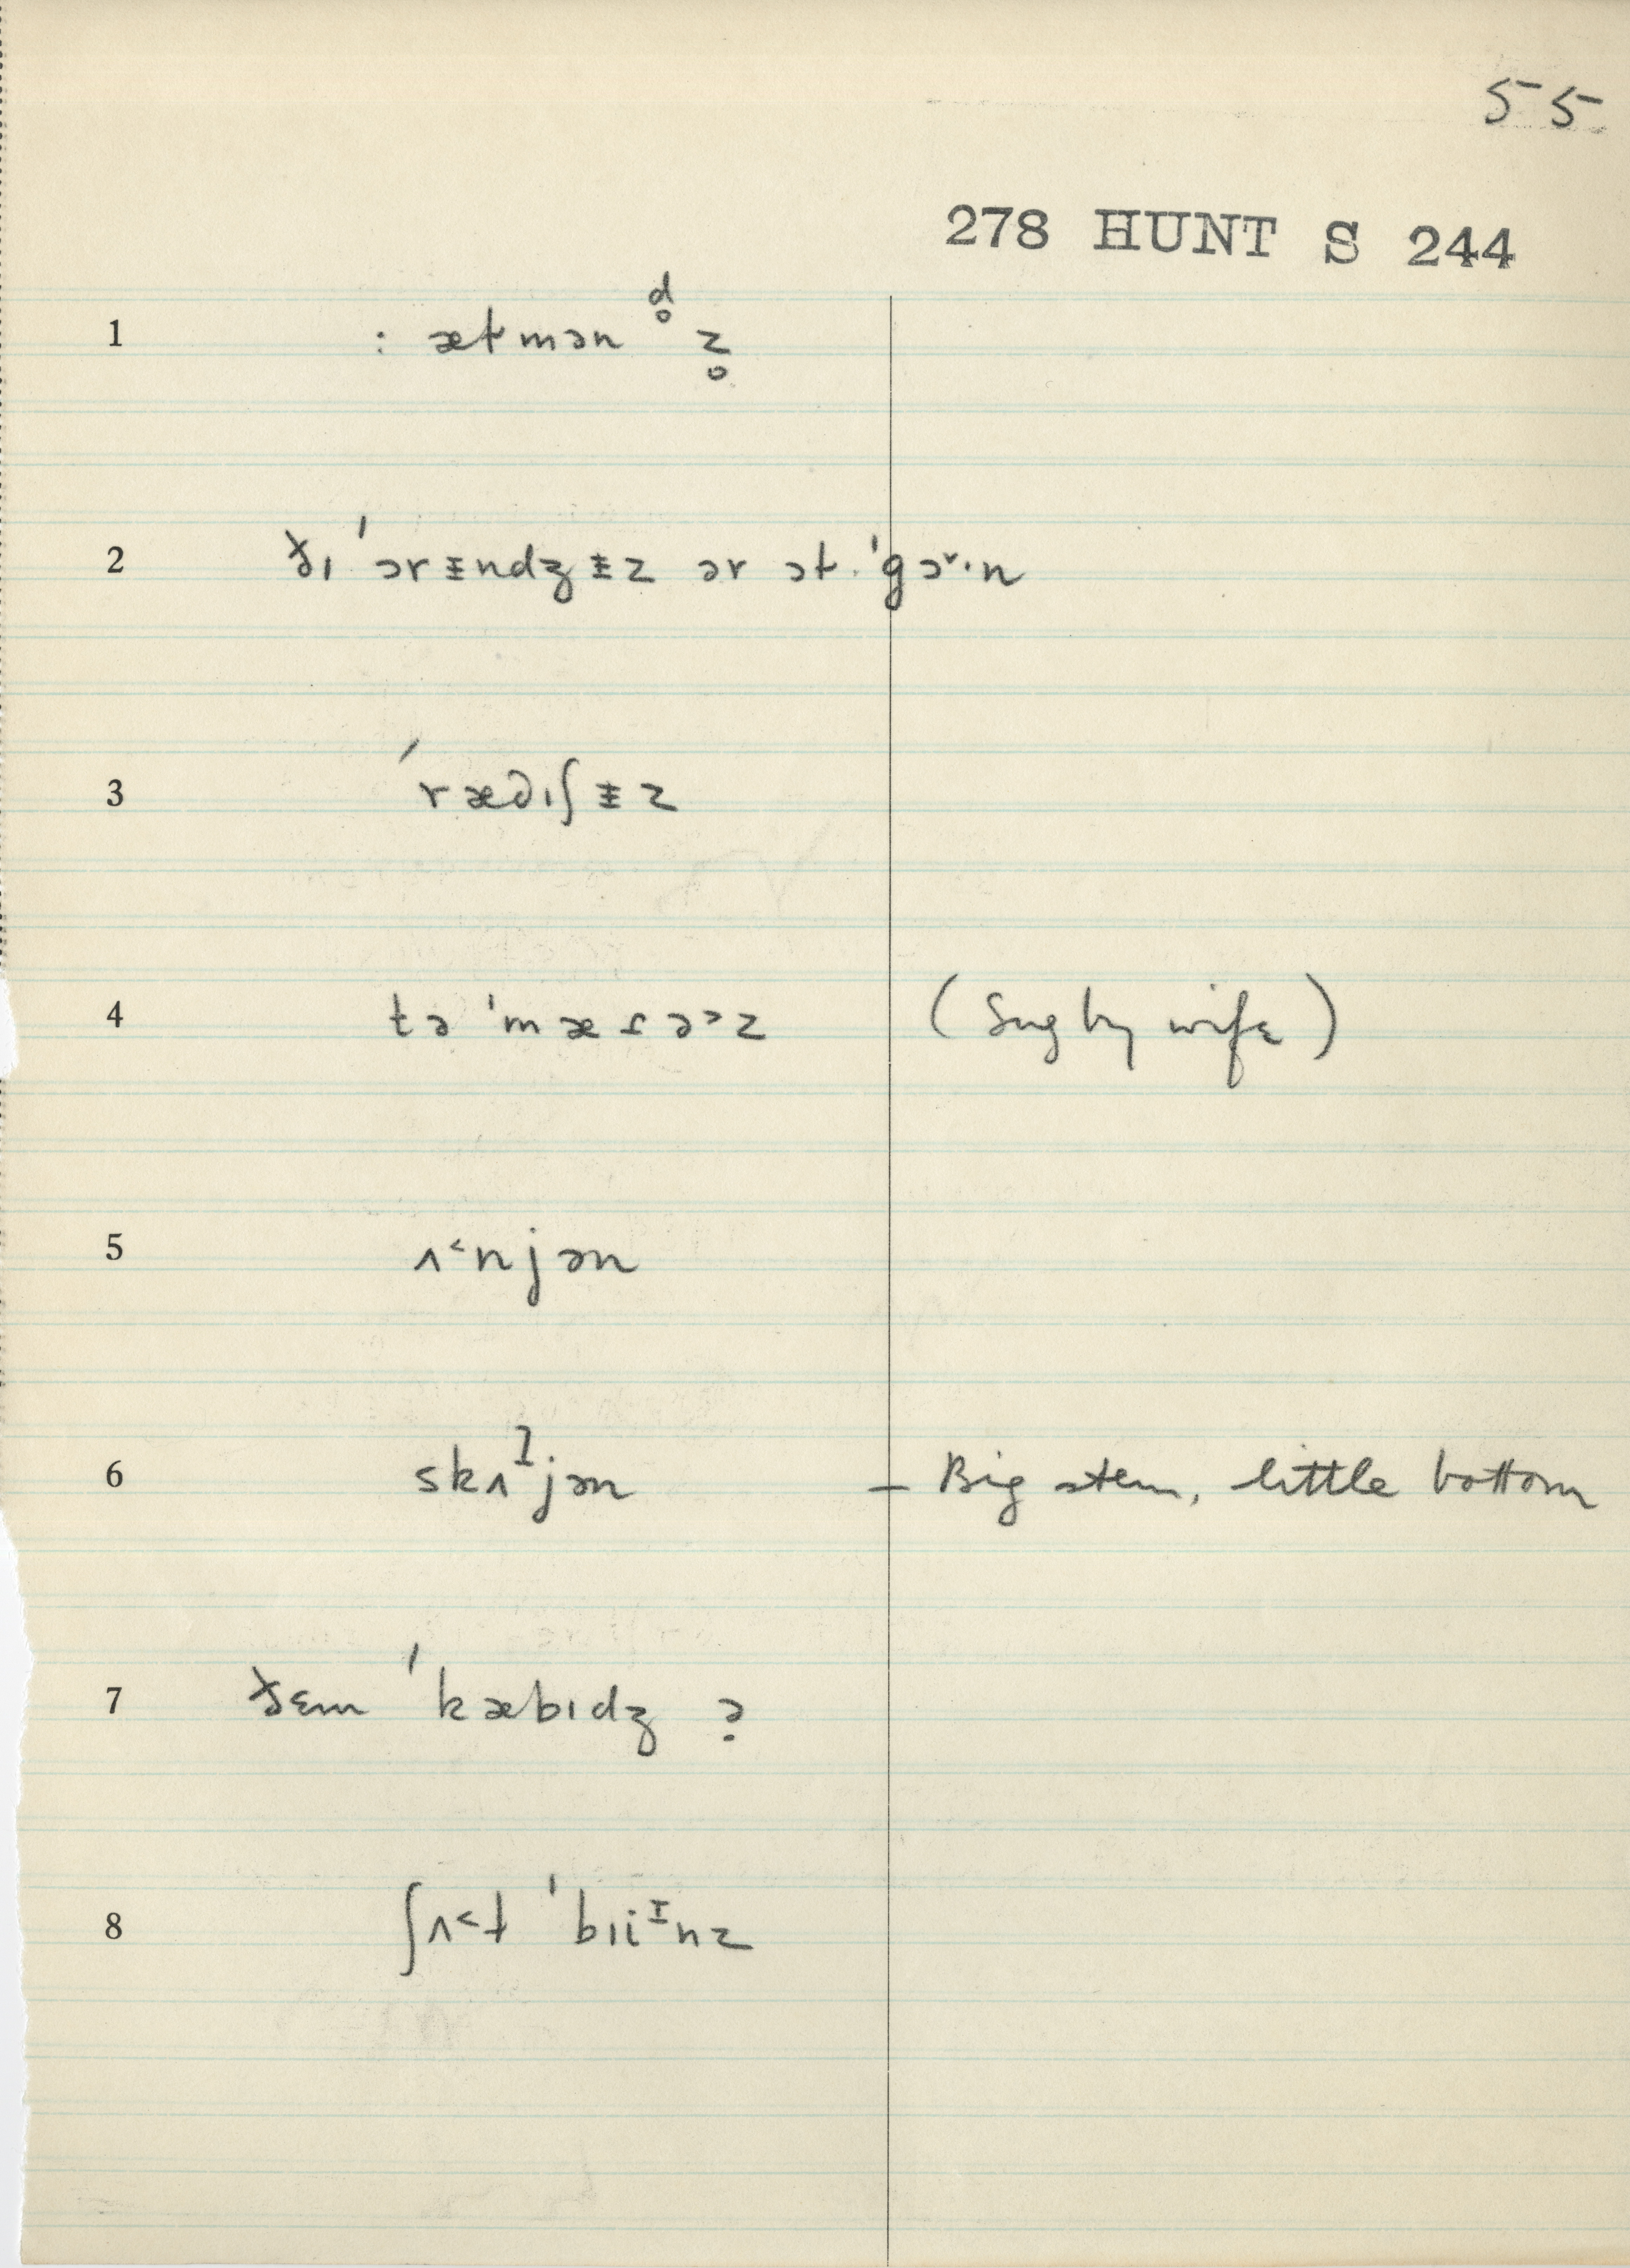 55
278 HUNT S 244
1 : ætmən d̥ z̥
2 ðɪ ˈɔrɪ̵ndʒɪ̵z ər ət ˈgɔ˞·n
3 ˈrædɪʃɪ̵z
4 tə ˈmæɾə˃z (Sug by wife)
5 ʌ˂njən
6 skʌljən – Big stem, little bottom
7 ðɛm ˈkæbɪdʒ ?
8 ʃʌ˂t ˈbɪiɪnz